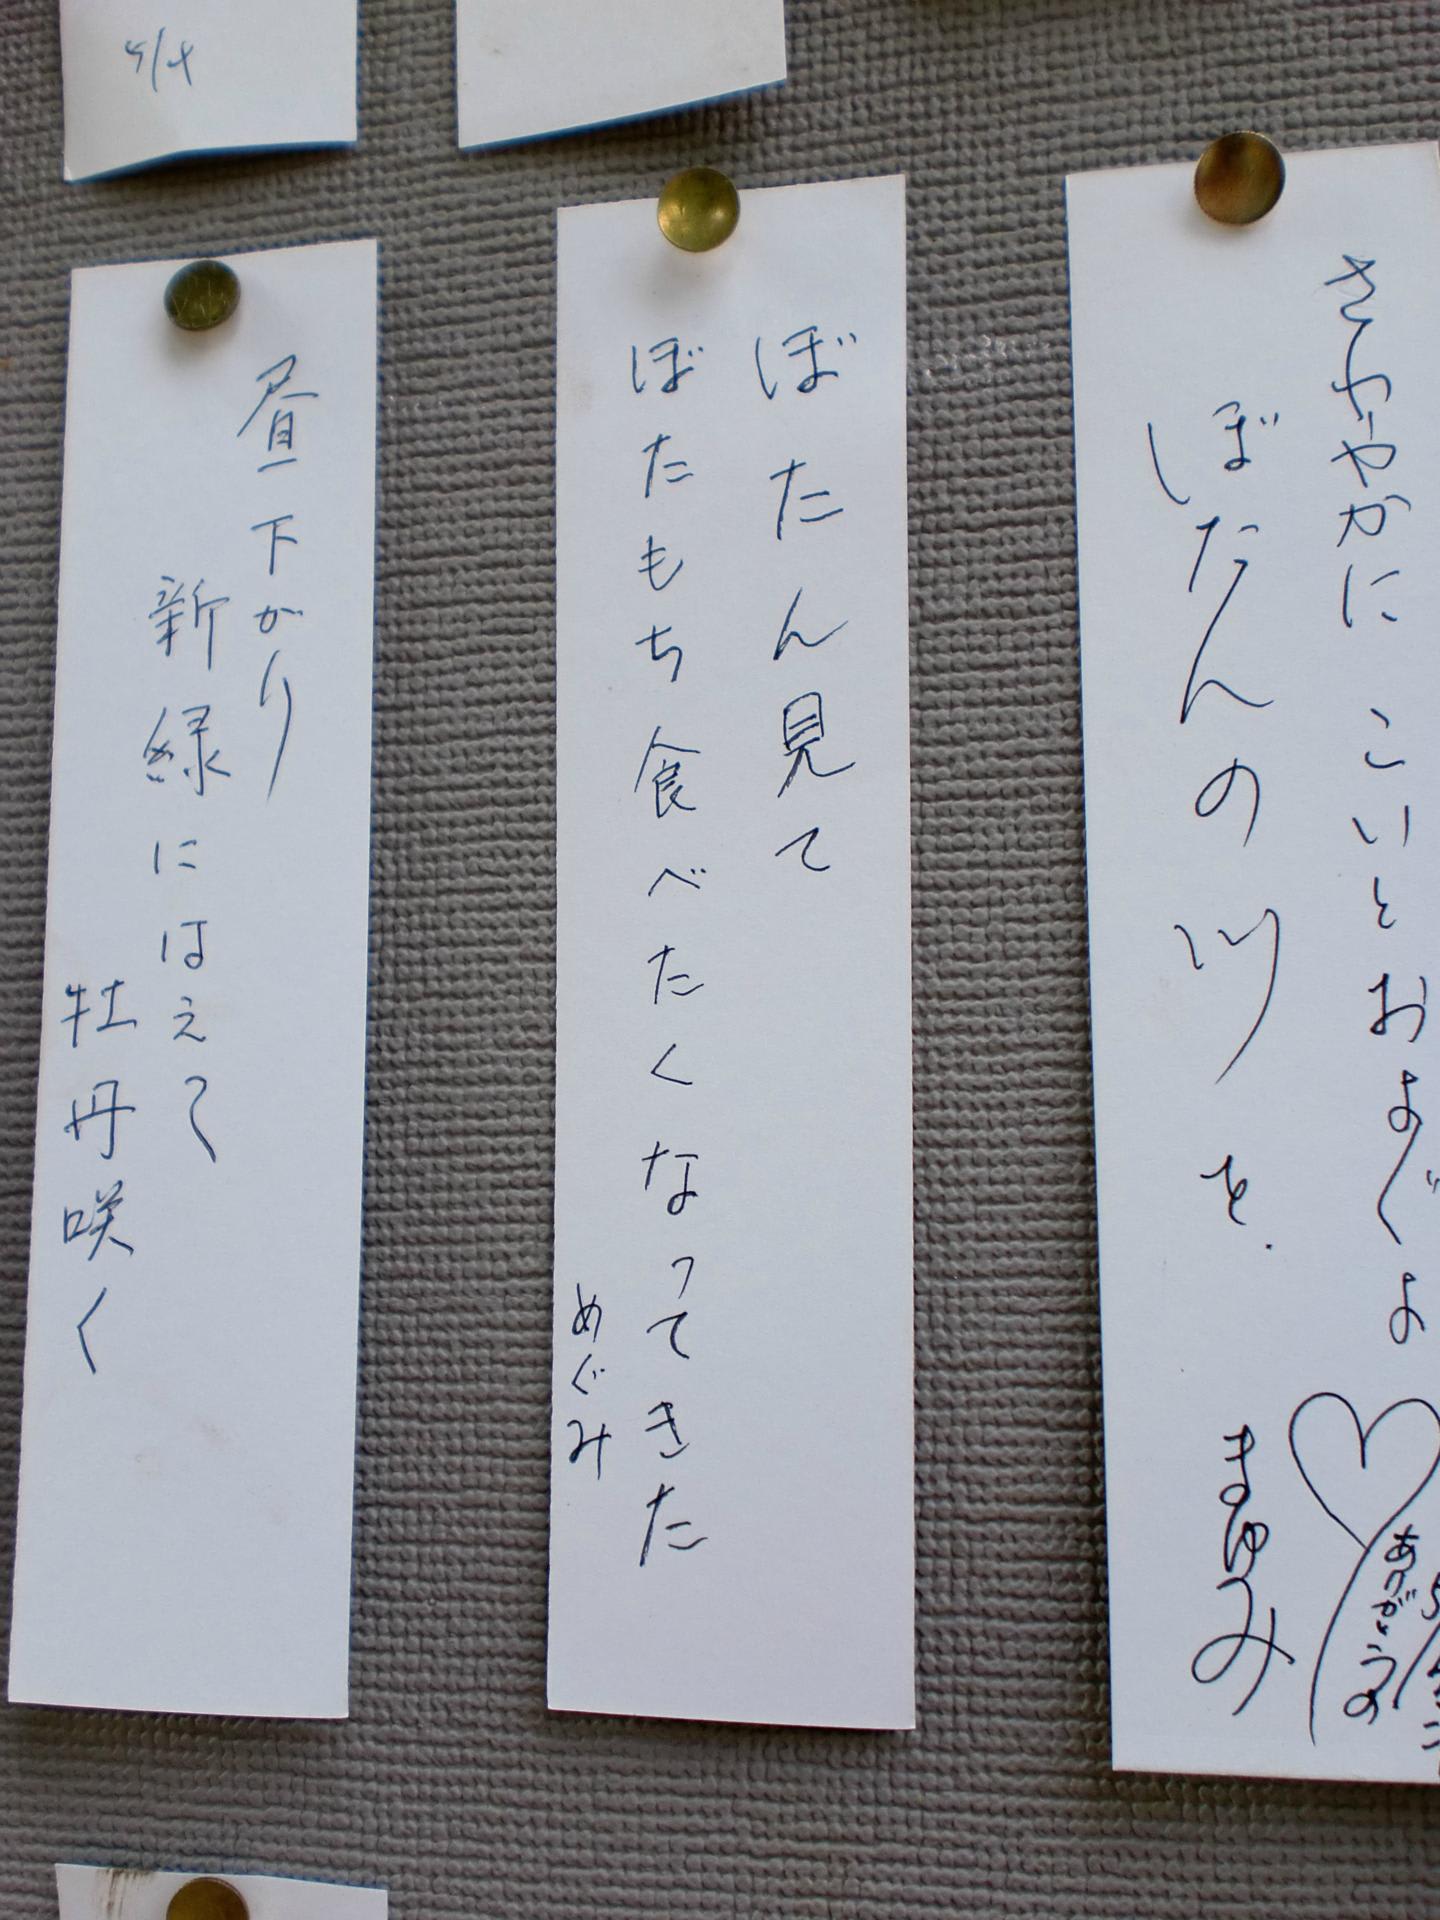 5/4
さわやかに こいとおよぐよ
ぼたんの川を.
まゆみ
ぼたん見て
ぼたもち食べたくなってきた
めぐみ
昼下がり
新緑にはえて
牡丹咲く